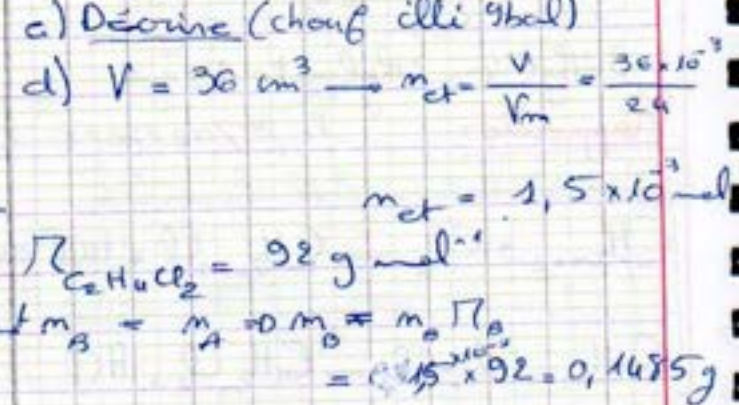 c) Décrire (chouf illi 9bal)
d) V = 36 cm³ → n_et = V / Vm = 36 × 10⁻³ / 24
n_et = 1,5 × 10⁻³ mol
M_C₂H₄Cl₂ = 92 g mol⁻¹
n_B = n_A ⇒ m_B = n_B M_B
= 1,5 × 10⁻³ × 92 = 0,1485 g